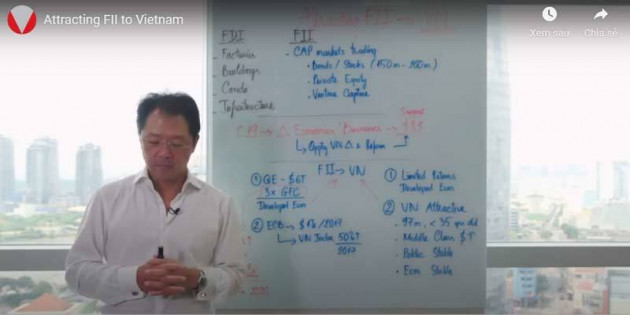 Attracting FII to Vietnam
Xem sau
Chia sẻ
Attracting FII →
FDI
- Factories
- Buildings
- Condo
- Infrastructure
FII
- CAP markets trading
• Bonds / Stocks
• Private Equity
• Venture Capital
Support
Δ Economies / Businesses → $$$
↳ Apply VN Δ & Reform
FII → VN
① QE - $6T
3x GFC
Developed Econ
② ECB →
↳ VN Index 50%↑
2017
① Limited Returns
Developed Econ
② VN Attractive
• 97m, < 35 yrs old
• Middle Class $ ↑
• Public Stable
• Econ Stable